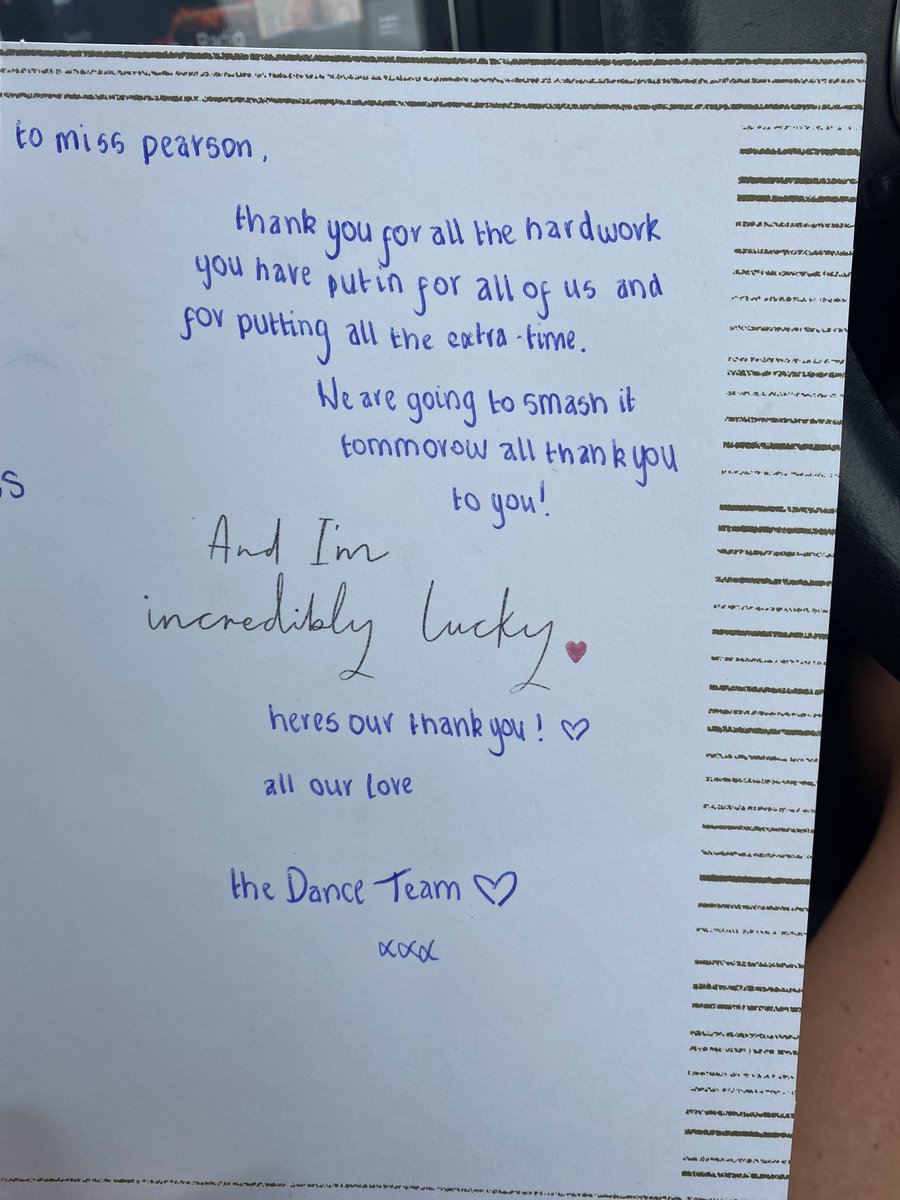 Radio
to miss pearson,
thank you for all the hardwork
you have put in for all of us and
for putting all the extra-time.
We are going to smash it
tommorow all thank you
to you!
And I'm
incredibly lucky
heres our thank you!
all our love
the Dance Team
xxx